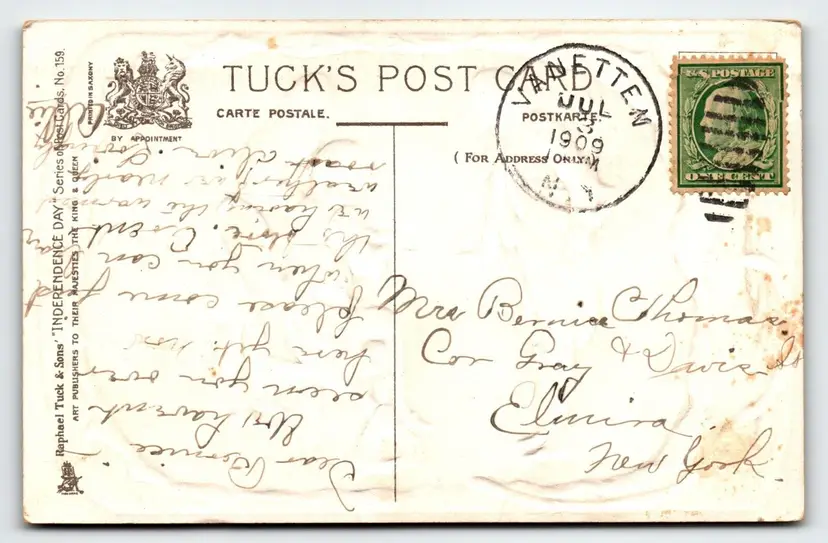 TUCK'S POST CARD
CARTE POSTALE.
POSTKARTE.
(FOR ADDRESS ONLY.)
BY APPOINTMENT
PRINTED IN SAXONY
Raphael Tuck & Sons' "INDEPENDENCE DAY" Series of Post Cards. No. 159.
ART PUBLISHERS TO THEIR MAJESTIES THE KING & QUEEN
VANETTEN
JUL
3
1909
M
N Y
U.S. POSTAGE
ONE CENT
Mrs Bernice Thomas
Cor Gray & Davis St
Elmira
New York
Dear Bernice -
We havent
seen you over
here yet. now
please come
when you can
this
we having the warm
weather! are nearly
roast alive. Lovingly